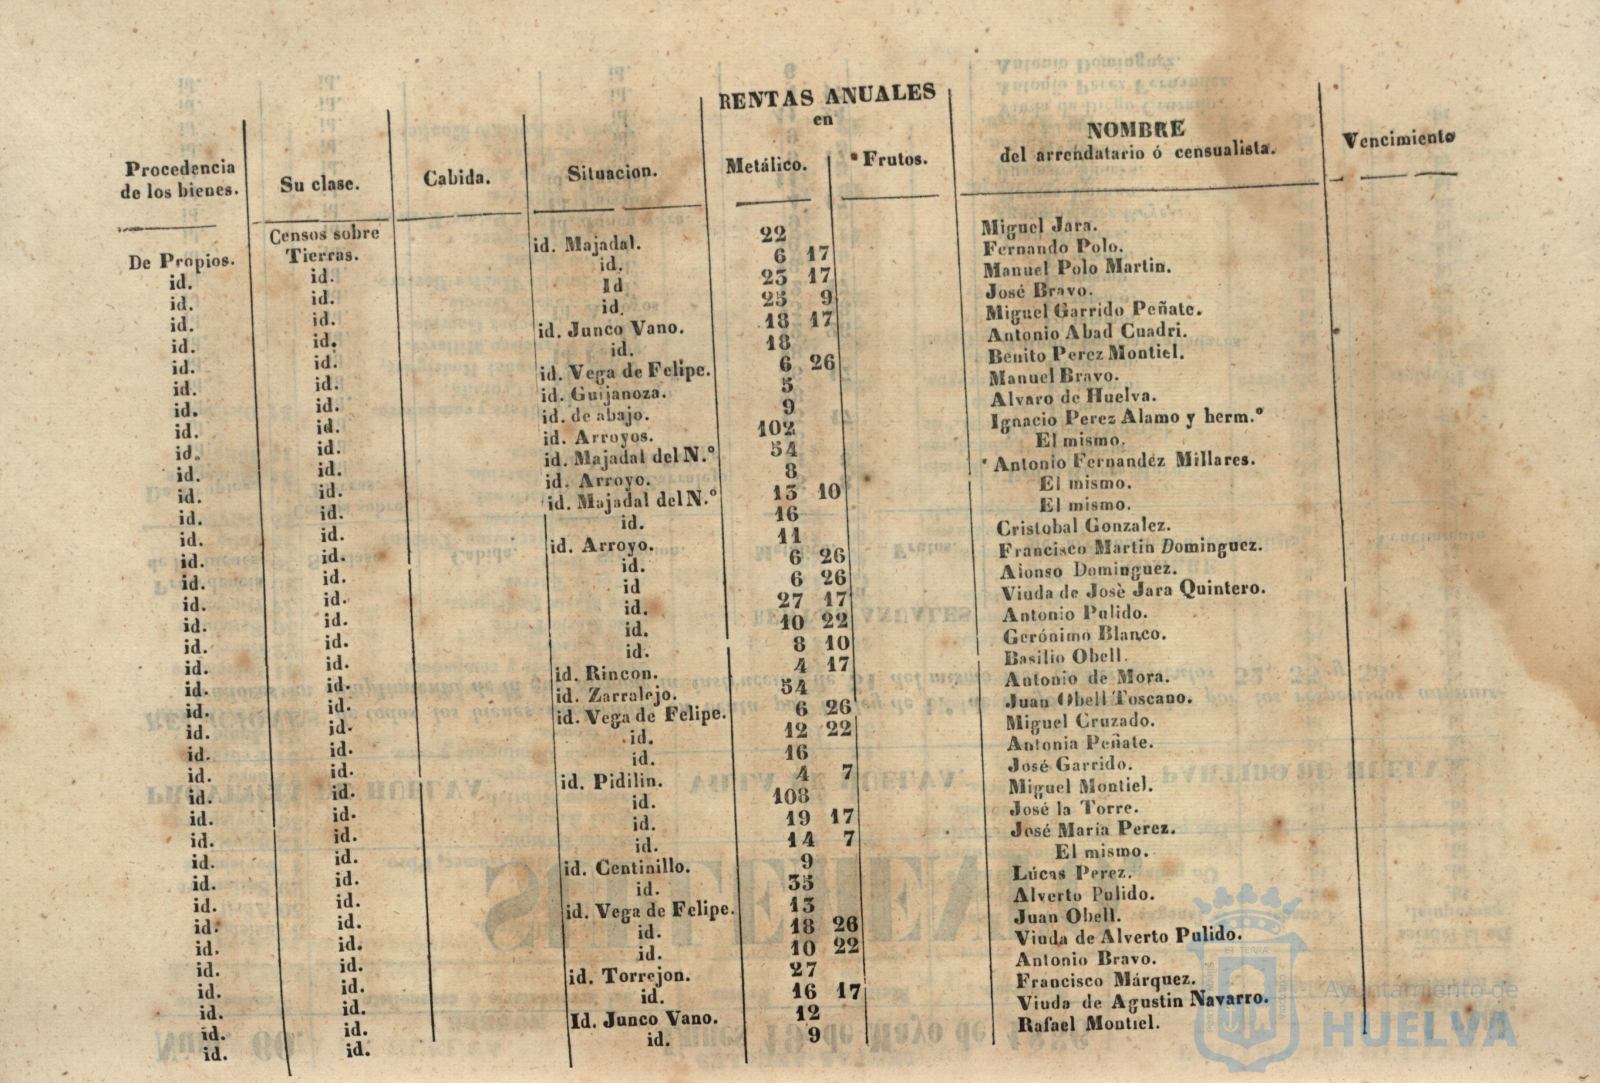 RENTAS ANUALES
en
Procedencia de los bienes. Su clase. Cabida. Situacion. Metálico. Frutos. NOMBRE del arrendatario ó censualista. Vencimiento
De Propios. Censos sobre Tierras. id. Majadal. 22 Miguel Jara.
id. id. id. 6 17 Fernando Polo.
id. id. Id 23 17 Manuel Polo Martin.
id. id. id. 25 9 José Bravo.
id. id. id. Junco Vano. 18 17 Miguel Garrido Peñate.
id. id. id. 18 Antonio Abad Cuadri.
id. id. id. Vega de Felipe. 6 26 Benito Perez Montiel.
id. id. id. Guijanoza. 5 Manuel Bravo.
id. id. id. de abajo. 9 Alvaro de Huelva.
id. id. id. Arroyos. 102 Ignacio Perez Alamo y herm.º
id. id. id. Majadal del N.º 54 El mismo.
id. id. id. Arroyo. 8 Antonio Fernandez Millares.
id. id. id. Majadal del N.º 13 10 El mismo.
id. id. id. 16 El mismo.
id. id. id. Arroyo. 11 Cristobal Gonzalez.
id. id. id. 6 26 Francisco Martin Dominguez.
id. id. id 6 26 Alonso Dominguez.
id. id. id. 27 17 Viuda de Josè Jara Quintero.
id. id. id. 10 22 Antonio Pulido.
id. id. id. 8 10 Gerónimo Blanco.
id. id. id. Rincon. 4 17 Basilio Obell.
id. id. id. Zarralejo. 54 Antonio de Mora.
id. id. id. Vega de Felipe. 6 26 Juan Obell Toscano.
id. id. id. 12 22 Miguel Cruzado.
id. id. id. 16 Antonia Peñate.
id. id. id. Pidilin. 4 7 José Garrido.
id. id. id. 108 Miguel Montiel.
id. id. id. 19 17 José la Torre.
id. id. id. 14 7 José Maria Perez.
id. id. id. Centinillo. 9 El mismo.
id. id. id. 35 Lúcas Perez.
id. id. id. Vega de Felipe. 13 Alverto Pulido.
id. id. id. 18 26 Juan Obell.
id. id. id. 10 22 Viuda de Alverto Pulido.
id. id. id. Torrejon. 27 Antonio Bravo.
id. id. id. 16 17 Francisco Márquez.
id. id. Id. Junco Vano. 12 Viuda de Agustin Navarro.
id. id. id. 9 Rafael Montiel.
Ayuntamiento de
HUELVA